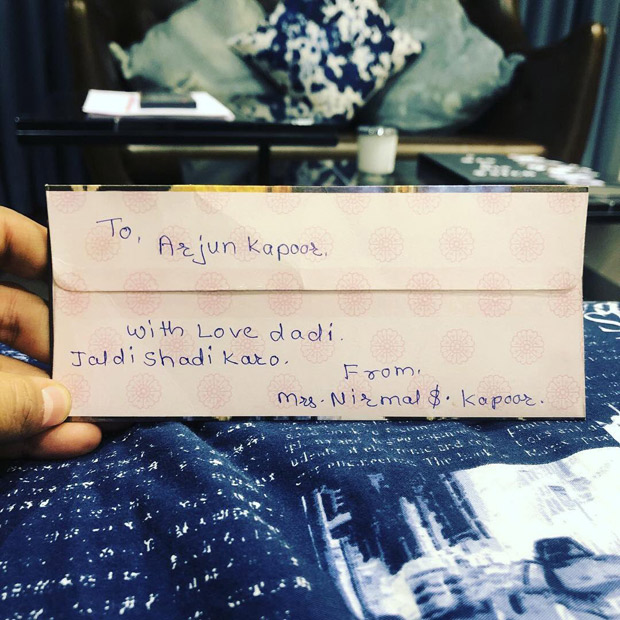 To,
Arjun Kapoor.
with Love dadi.
Jaldi Shadi Karo.
From,
Mrs. Nirmal S. Kapoor.